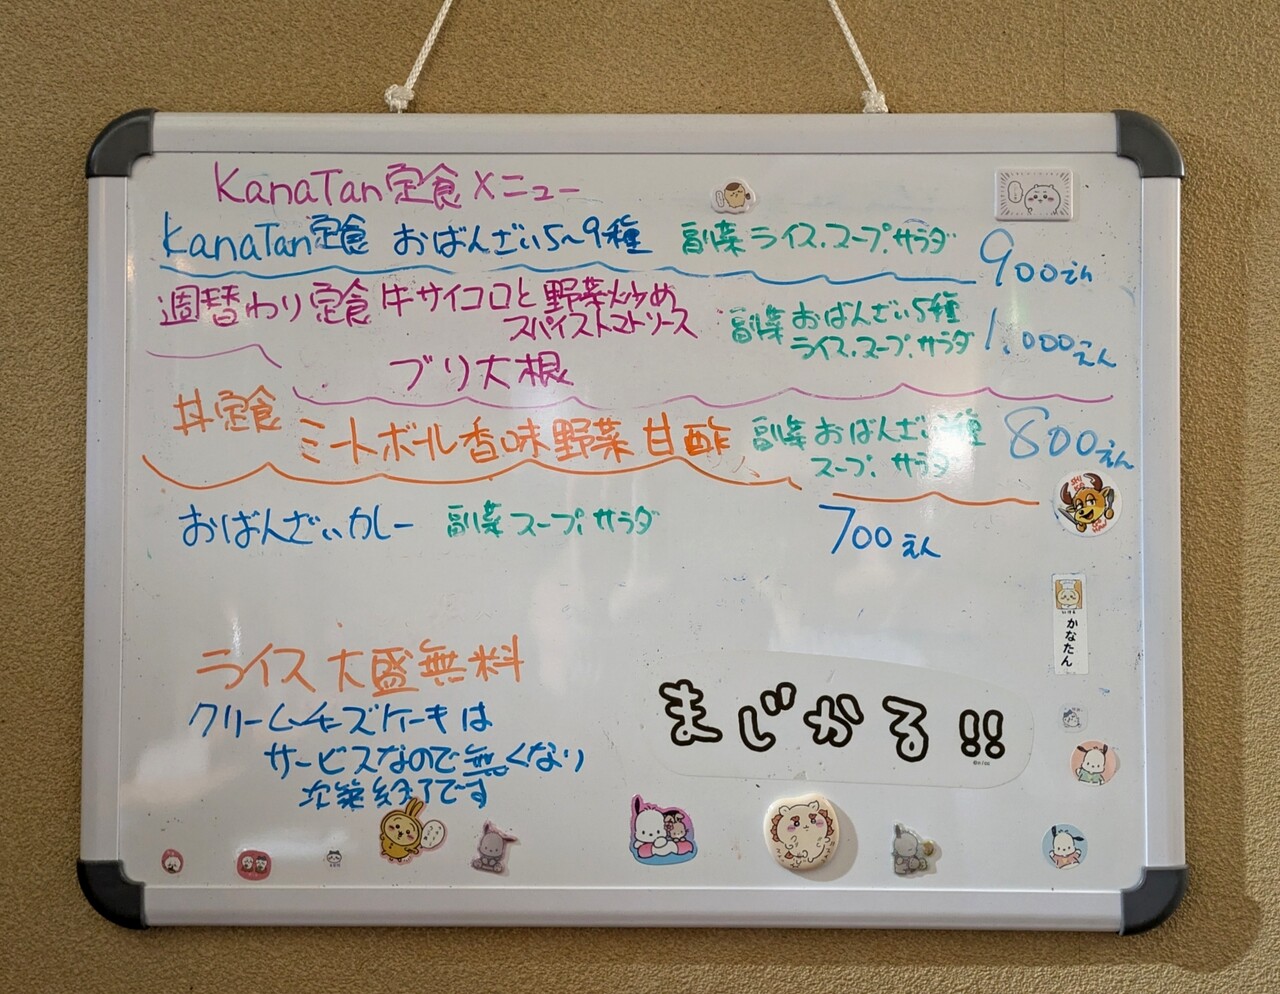 KanaTan定食メニュー
KanaTan定食 おばんざい5~9種 副菜 ライス.スープ.サラダ 900えん
週替わり定食 牛サイコロと野菜炒め
スパイストマトソース
副菜 おばんざい5種
ライス.スープ.サラダ 1,000えん
ブリ大根
丼定食 ミートボール香味野菜 甘酢
副菜 おばんざい 種
スープ.サラダ 800えん
おばんざいカレー 副菜 スープ.サラダ 700えん
ライス大盛無料
クリームチーズケーキは
サービスなので無くなり
次第終了です
まじかる!!
かなたん